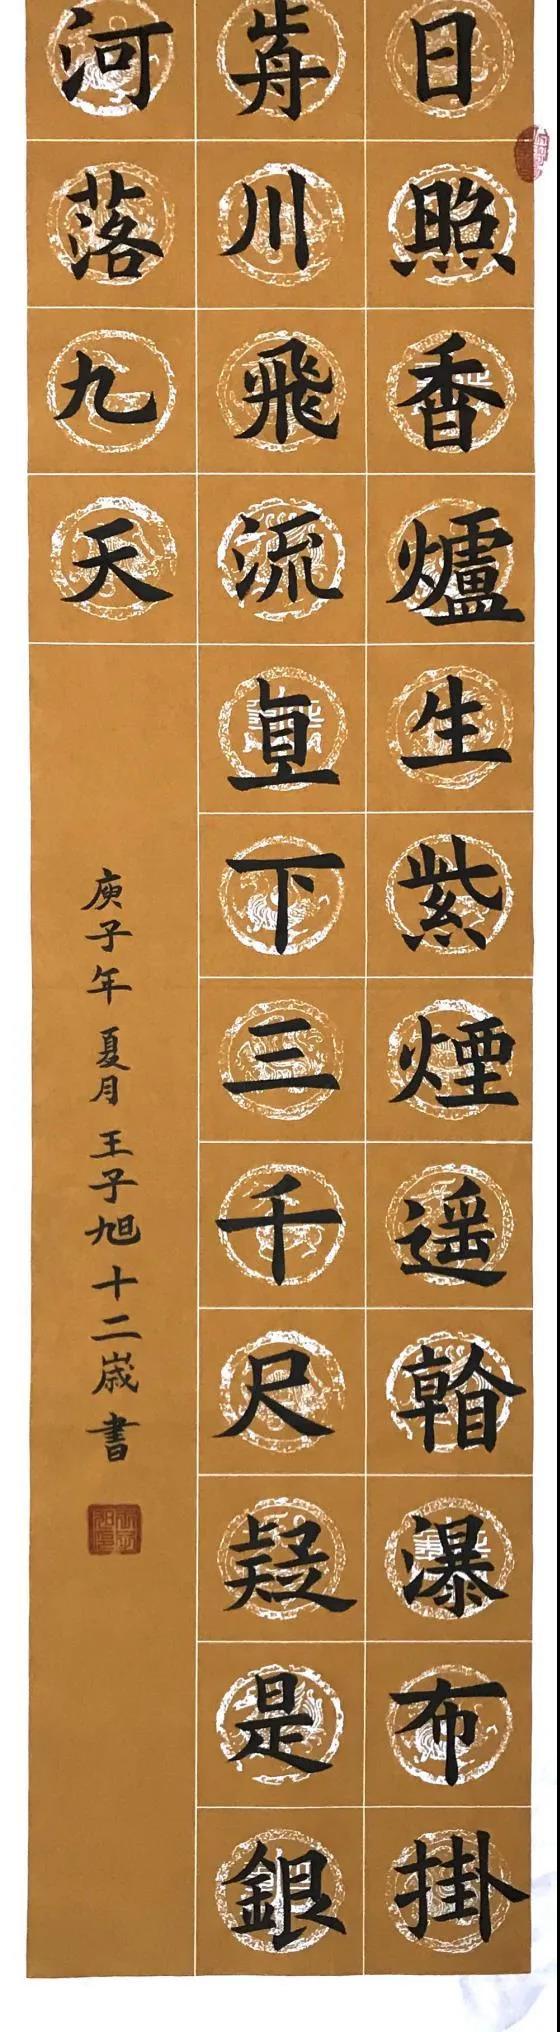 日照香爐生紫煙遥看瀑布掛
前川飛流直下三千尺疑是銀
河落九天
庚子年夏月王子旭十二歲書